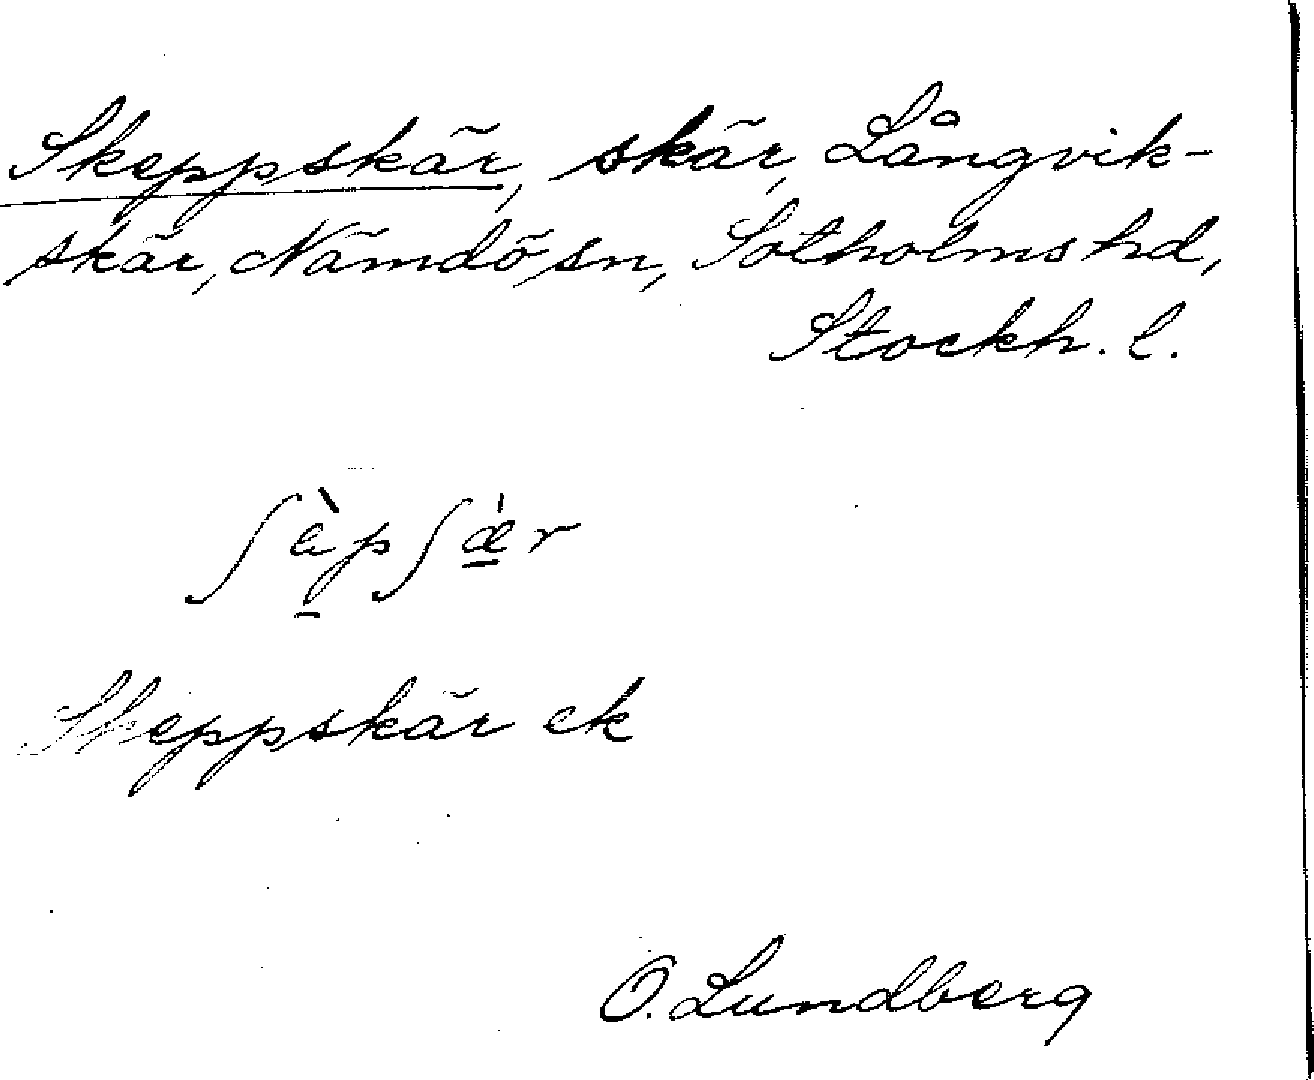 Skeppskär, skär, Långvik-
skär, Nämdö sn, Sotholms hd,
Stockh. l.
ʃàp̠ʃæ̠̍r
Skeppskär ek
O. Lundberg